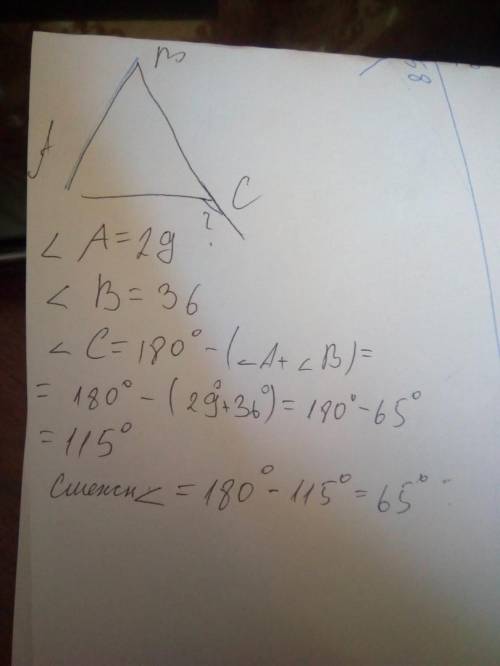 B
A
C
?
∠ A = 29
∠ B = 36
∠ C = 180° - (∠A + ∠B) =
= 180° - (29° + 36°) = 180° - 65°
= 115°
Смежн ∠ = 180° - 115° = 65°